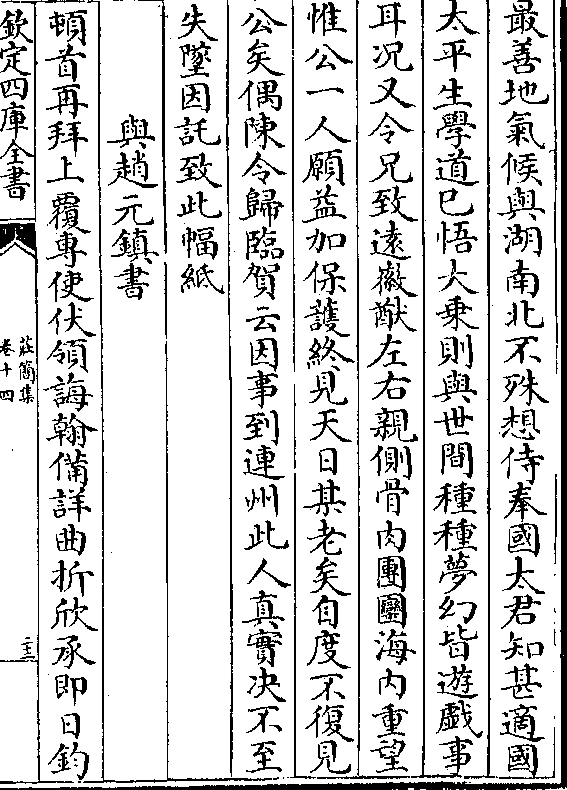 最善地氣候與湖南北不殊想侍奉國太君知甚適國
太平生學道已悟大乗則與世間種種夢幻皆遊戲事
耳况又令兄致逺徽猷左右親側骨肉團圞海内重望
惟公一人願益加保護終見天日某老矣自度不復見
公矣偶陳令歸臨賀云因事到連州此人真實决不至
失墜因託致此幅紙
與趙元鎮書
頓首再拜上覆專使伏領誨翰備詳曲折欣承即日鈞
欽定四庫全書
莊簡集
卷十四
二十三